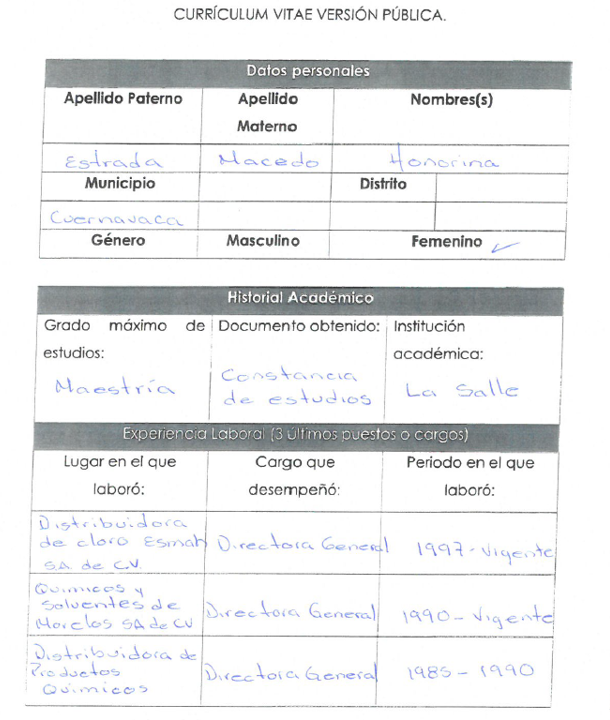 CURRÍCULUM VITAE VERSIÓN PÚBLICA.
Datos personales
Apellido Paterno Apellido Nombres(s)
Materno
Estrada Macedo Honorina
Municipio Distrito
Cuernavaca
Género Masculino Femenino ✓
Historial Académico
Grado máximo de Documento obtenido: Institución
estudios: académica:
Maestría Constancia La Salle
de estudios
Experiencia Laboral (3 últimos puestos o cargos)
Lugar en el que Cargo que Periodo en el que
laboró: desempeñó: laboró:
Distribuidora
de cloro Esmah Directora General 1997-Vigente
SA de C.V.
Quimicos y
Solventes de Directora General 1990-Vigente
Morelos SA de CV
Distribuidora de
Productos Directora General 1985-1990
Quimicos